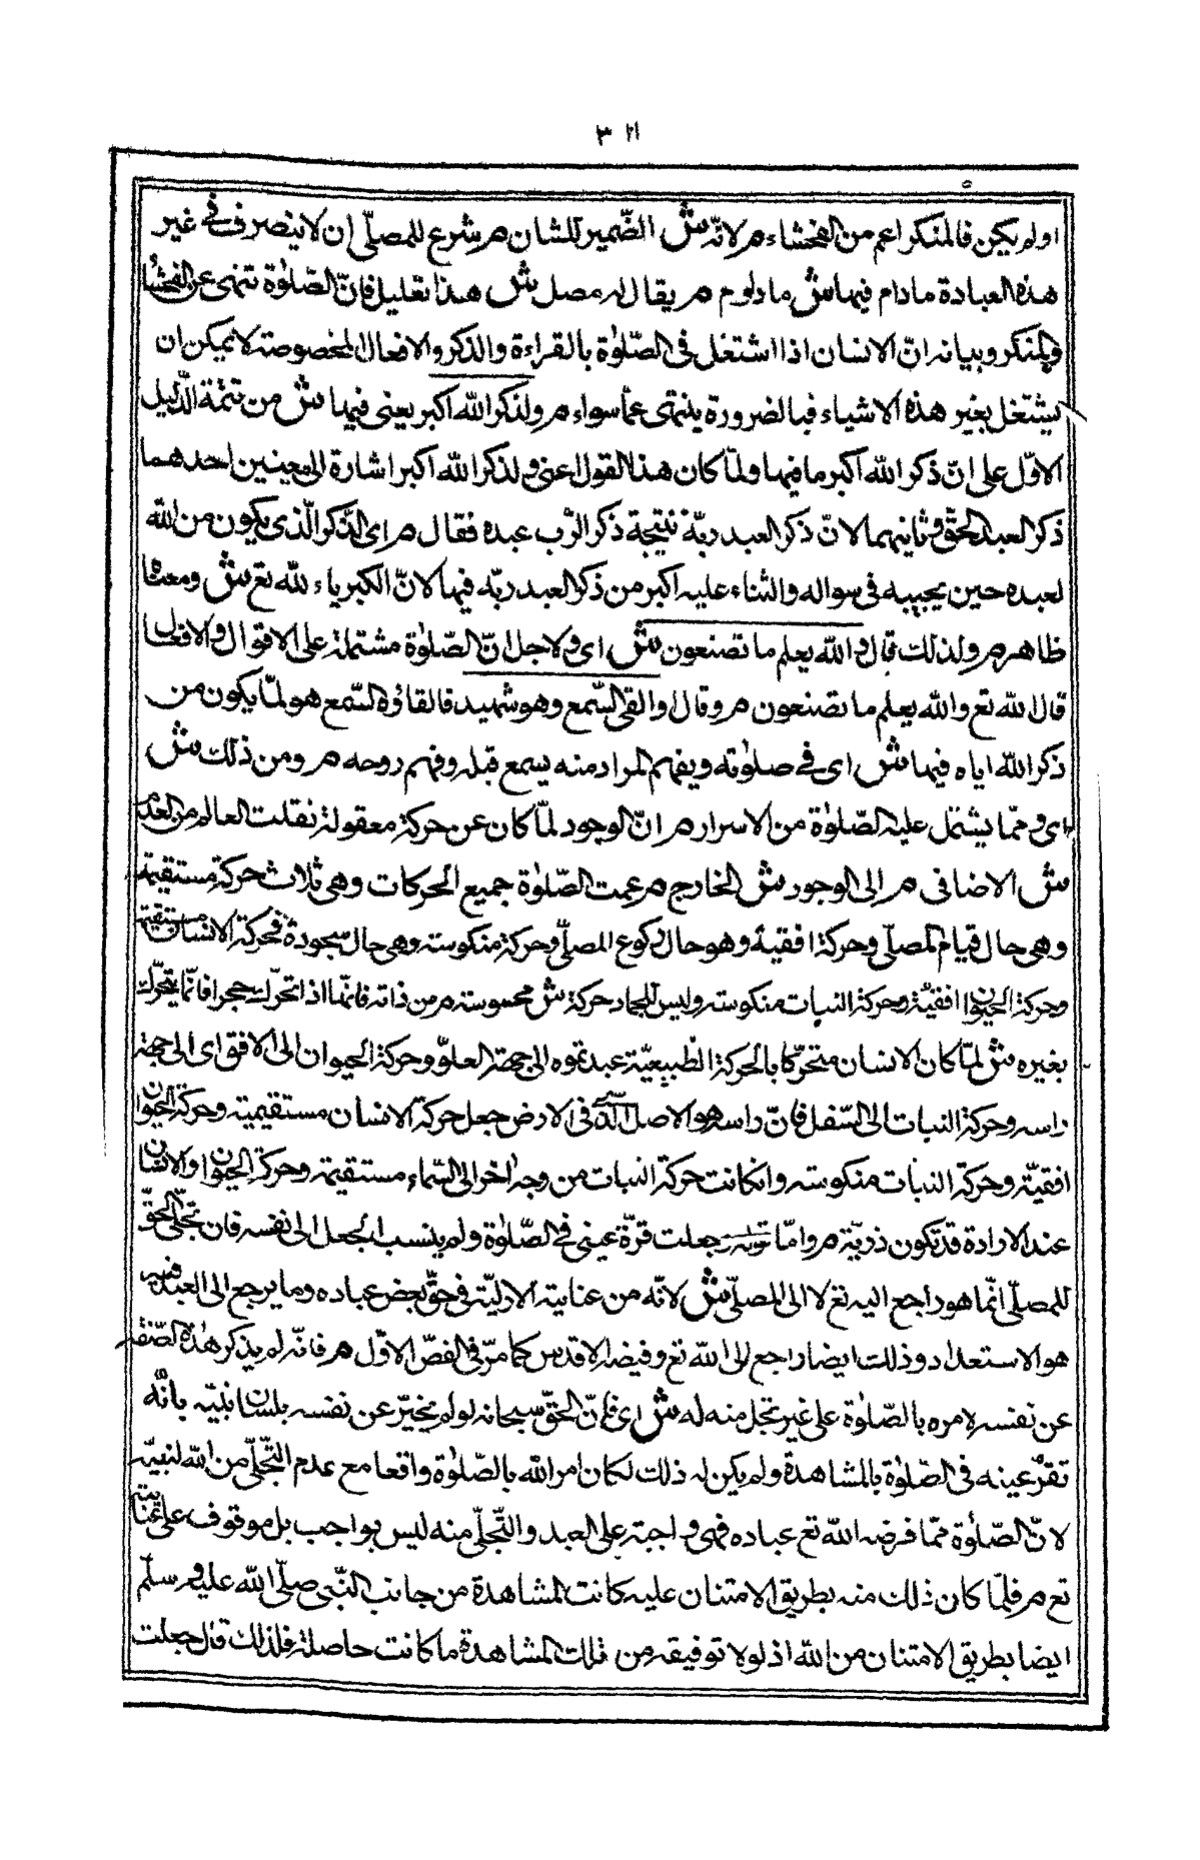 ٣٢١
اولم يكن فالمنكر اعم من الفحشاء م لانّه ش الضّمير للشان م شرع للمصلّى ان لا يتصرف فى غير
هذه العبادة مادام فيها ش مادلوم م يقال له مصل ش هذا تعليل فانّ الصّلوٰة تنهى عن الفحشاء
والمنكر وبيانه انّ الانسان اذا اشتغل فى الصّلوٰة بالقراءة والذكر والافعال المخصوصة لا يمكن ان
يشتغل بغير هذه الاشياء فبالضرورة ينتهى عمّا سواه م ولذكر الله اكبر يعنى فيها ش من تتمّة الدّليل
الاوّل على انّ ذكر الله اكبر ما فيها ولمّا كان هذا القول اعنى ولذكر الله اكبر اشارة الى معينين احدهما
ذكر العبد الحقّ وثانيهما لانّ ذكر العبد ربّه نتيجة ذكر الرّب عبده فقال م اى الذّكر الّذى يكون من الله
لعبده حين يجيبه فى سواله والثناء عليه اكبر من ذكر العبد ربّه فيها لانّ الكبرياء لله تع ش ومعناه
ظاهر م ولذلك قال والله يعلم ما تصنعون ش اى ولاجل انّ الصّلوٰة مشتملة على الاقوال والافعال
قال الله تع والله يعلم ما تصنعون م وقال والقى السّمع وهو شهيد فالقاؤه السّمع هو لما يكون من
ذكر الله اياه فيها ش اى فى صلوٰته ويفهم المراد منه يسمع قبله وفهم روحه م ومن ذلك ش
اى وممّا يشتمل عليه الصّلوٰة من الاسرار م انّ الوجود لمّا كان عن حركة معقولة نقلت العالم من العدم
ش الاضافى م الى الوجود ش الخارج م عمت الصّلوٰة جميع الحركات وهى ثلاث حركة مستقيمة
وهى حال قيام المصلّى وحركة افقية وهو حال ركوع المصلّى وحركة منكوسة وهى حال سجوده فحركة الانسان مستقيمة
وحركة الحيوان افقيّة وحركة النبات منكوسة وليس للجماد حركة ش محسوسة م من ذاته فانّما اذا تحرّك حجر فانّما يتحرّك
بغيره ش لمّا كان الانسان متحرّكا بالحركة الطّبيعيّة عبد تموه الى جهة العلوّ وحركة الحيوان الى الافق اى الى جهة
راسه وحركة النبات الى السّفل فانّ راسه هو الاصل الّذى فى الارض جعل حركة الانسان مستقيمة وحركة الحيوان
افقيّة وحركة النبات منكوسة وانكانت حركة النبات من وجه اخر الى السّماء مستقيمة وحركة الحيوان والانسان
عند الارادة قد تكون ذريّة م وامّا قوله وجعلت قرّة عينى فى الصّلوٰة ولم ينسب الجعل الى نفسه فان تجلّى الحقّ
للمصلّى انّما هو راجع اليه تع لا الى المصلّى ش لانّه من عنايته الازليّة فى حقّ بعض عباده وما يرجع الى العبد فيه
هو الاستعداد وذلك ايضا راجع الى الله تع وفيضه الاقدس كما مرّ فى الفصّ الاوّل م فانّه لم يذكر هذه الصّفة
عن نفسه لامره بالصّلوٰة على غير تجل منه له ش اى فانّ الحقّ سبحانه لو لم يخبر عن نفسه بلسان نبيّه بانّه
تقرّ عينه فى الصّلوٰة بالمشاهدة ولم يكن له ذلك لكان امر الله بالصّلوٰة واقعا مع عدم التّجلّى من الله لنبيّه
لانّ الصّلوٰة ممّا فرضه الله تع عباده فهى واجبة على العبد والتّجلّى منه ليس بواجب بل موقوف على عنايته
تع م فلمّا كان ذلك منه بطريق الامتنان عليه كانت المشاهدة من جانب النّبى صلّى الله عليه وسلّم
ايضا بطريق الامتنان من الله اذ لولا توفيقه من تلك المشاهدة ما كانت حاصلة فلذلك قال جعلت